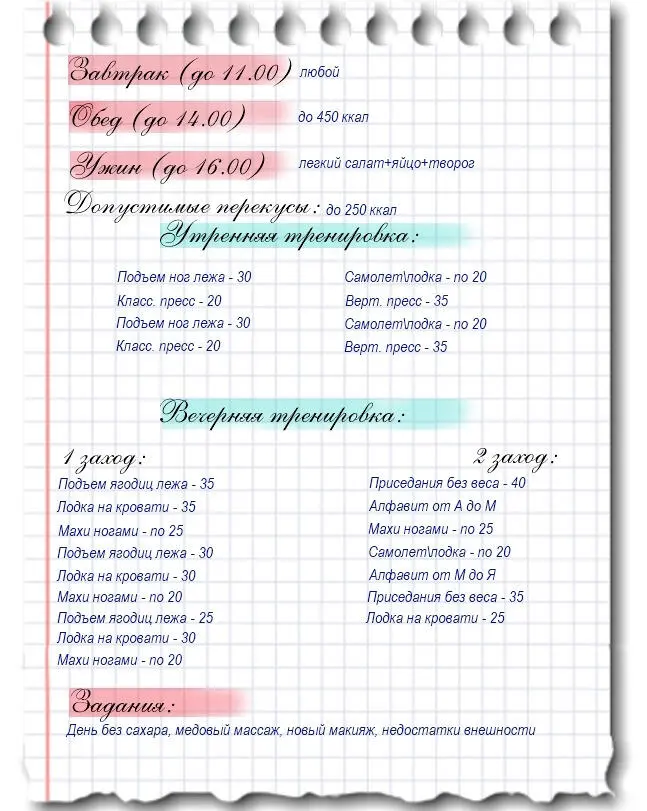 Завтрак (до 11.00) любой
Обед (до 14.00) до 450 ккал
Ужин (до 16.00) легкий салат+яйцо+творог
Допустимые перекусы: до 250 ккал
Утренняя тренировка:
Подъем ног лежа - 30 Самолет\лодка - по 20
Класс. пресс - 20 Верт. пресс - 35
Подъем ног лежа - 30 Самолет\лодка - по 20
Класс. пресс - 20 Верт. пресс - 35
Вечерняя тренировка:
1 заход:
Подъем ягодиц лежа - 35
Лодка на кровати - 35
Махи ногами - по 25
Подъем ягодиц лежа - 30
Лодка на кровати - 30
Махи ногами - по 20
Подъем ягодиц лежа - 25
Лодка на кровати - 30
Махи ногами - по 20
2 заход:
Приседания без веса - 40
Алфавит от А до М
Махи ногами - по 25
Самолет\лодка - по 20
Алфавит от М до Я
Приседания без веса - 35
Лодка на кровати - 25
Задания:
День без сахара, медовый массаж, новый макияж, недостатки внешности